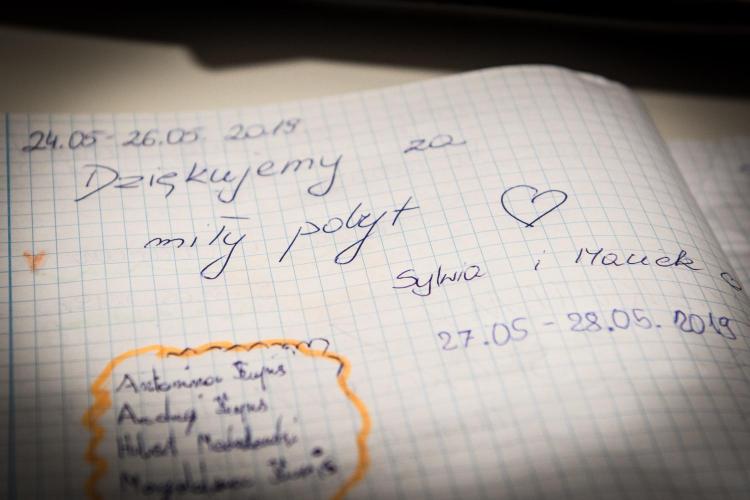 24.05-26.05. 2019
Dziękujemy za
miły pobyt
Sylwia i Maciek
27.05-28.05.2019
Antonina
Andrzej
Hubert
Magdalena